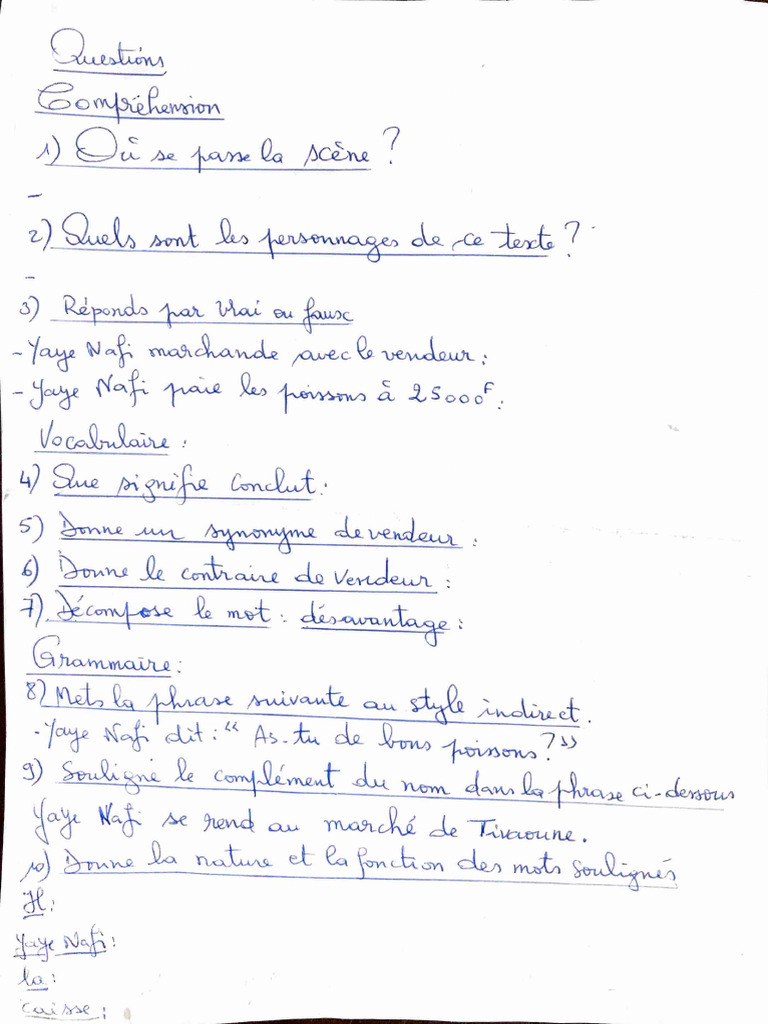 Questions
Compréhension
1) Où se passe la scène ?
-
2) Quels sont les personnages de ce texte ?
-
3) Réponds par vrai ou faux
- Yaye Nafi marchande avec le vendeur :
- Yaye Nafi paie les poissons à 25000F :
Vocabulaire :
4) Que signifie conclut :
5) Donne un synonyme de vendeur :
6) Donne le contraire de vendeur :
7) Décompose le mot : désavantage :
Grammaire :
8) Mets la phrase suivante au style indirect.
- Yaye Nafi dit : " As-tu de bons poissons ? "
9) Souligne le complément du nom dans la phrase ci-dessous
Yaye Nafi se rend au marché de Tivaoune.
10) Donne la nature et la fonction des mots soulignés
Il :
Yaye Nafi :
la :
caisse :